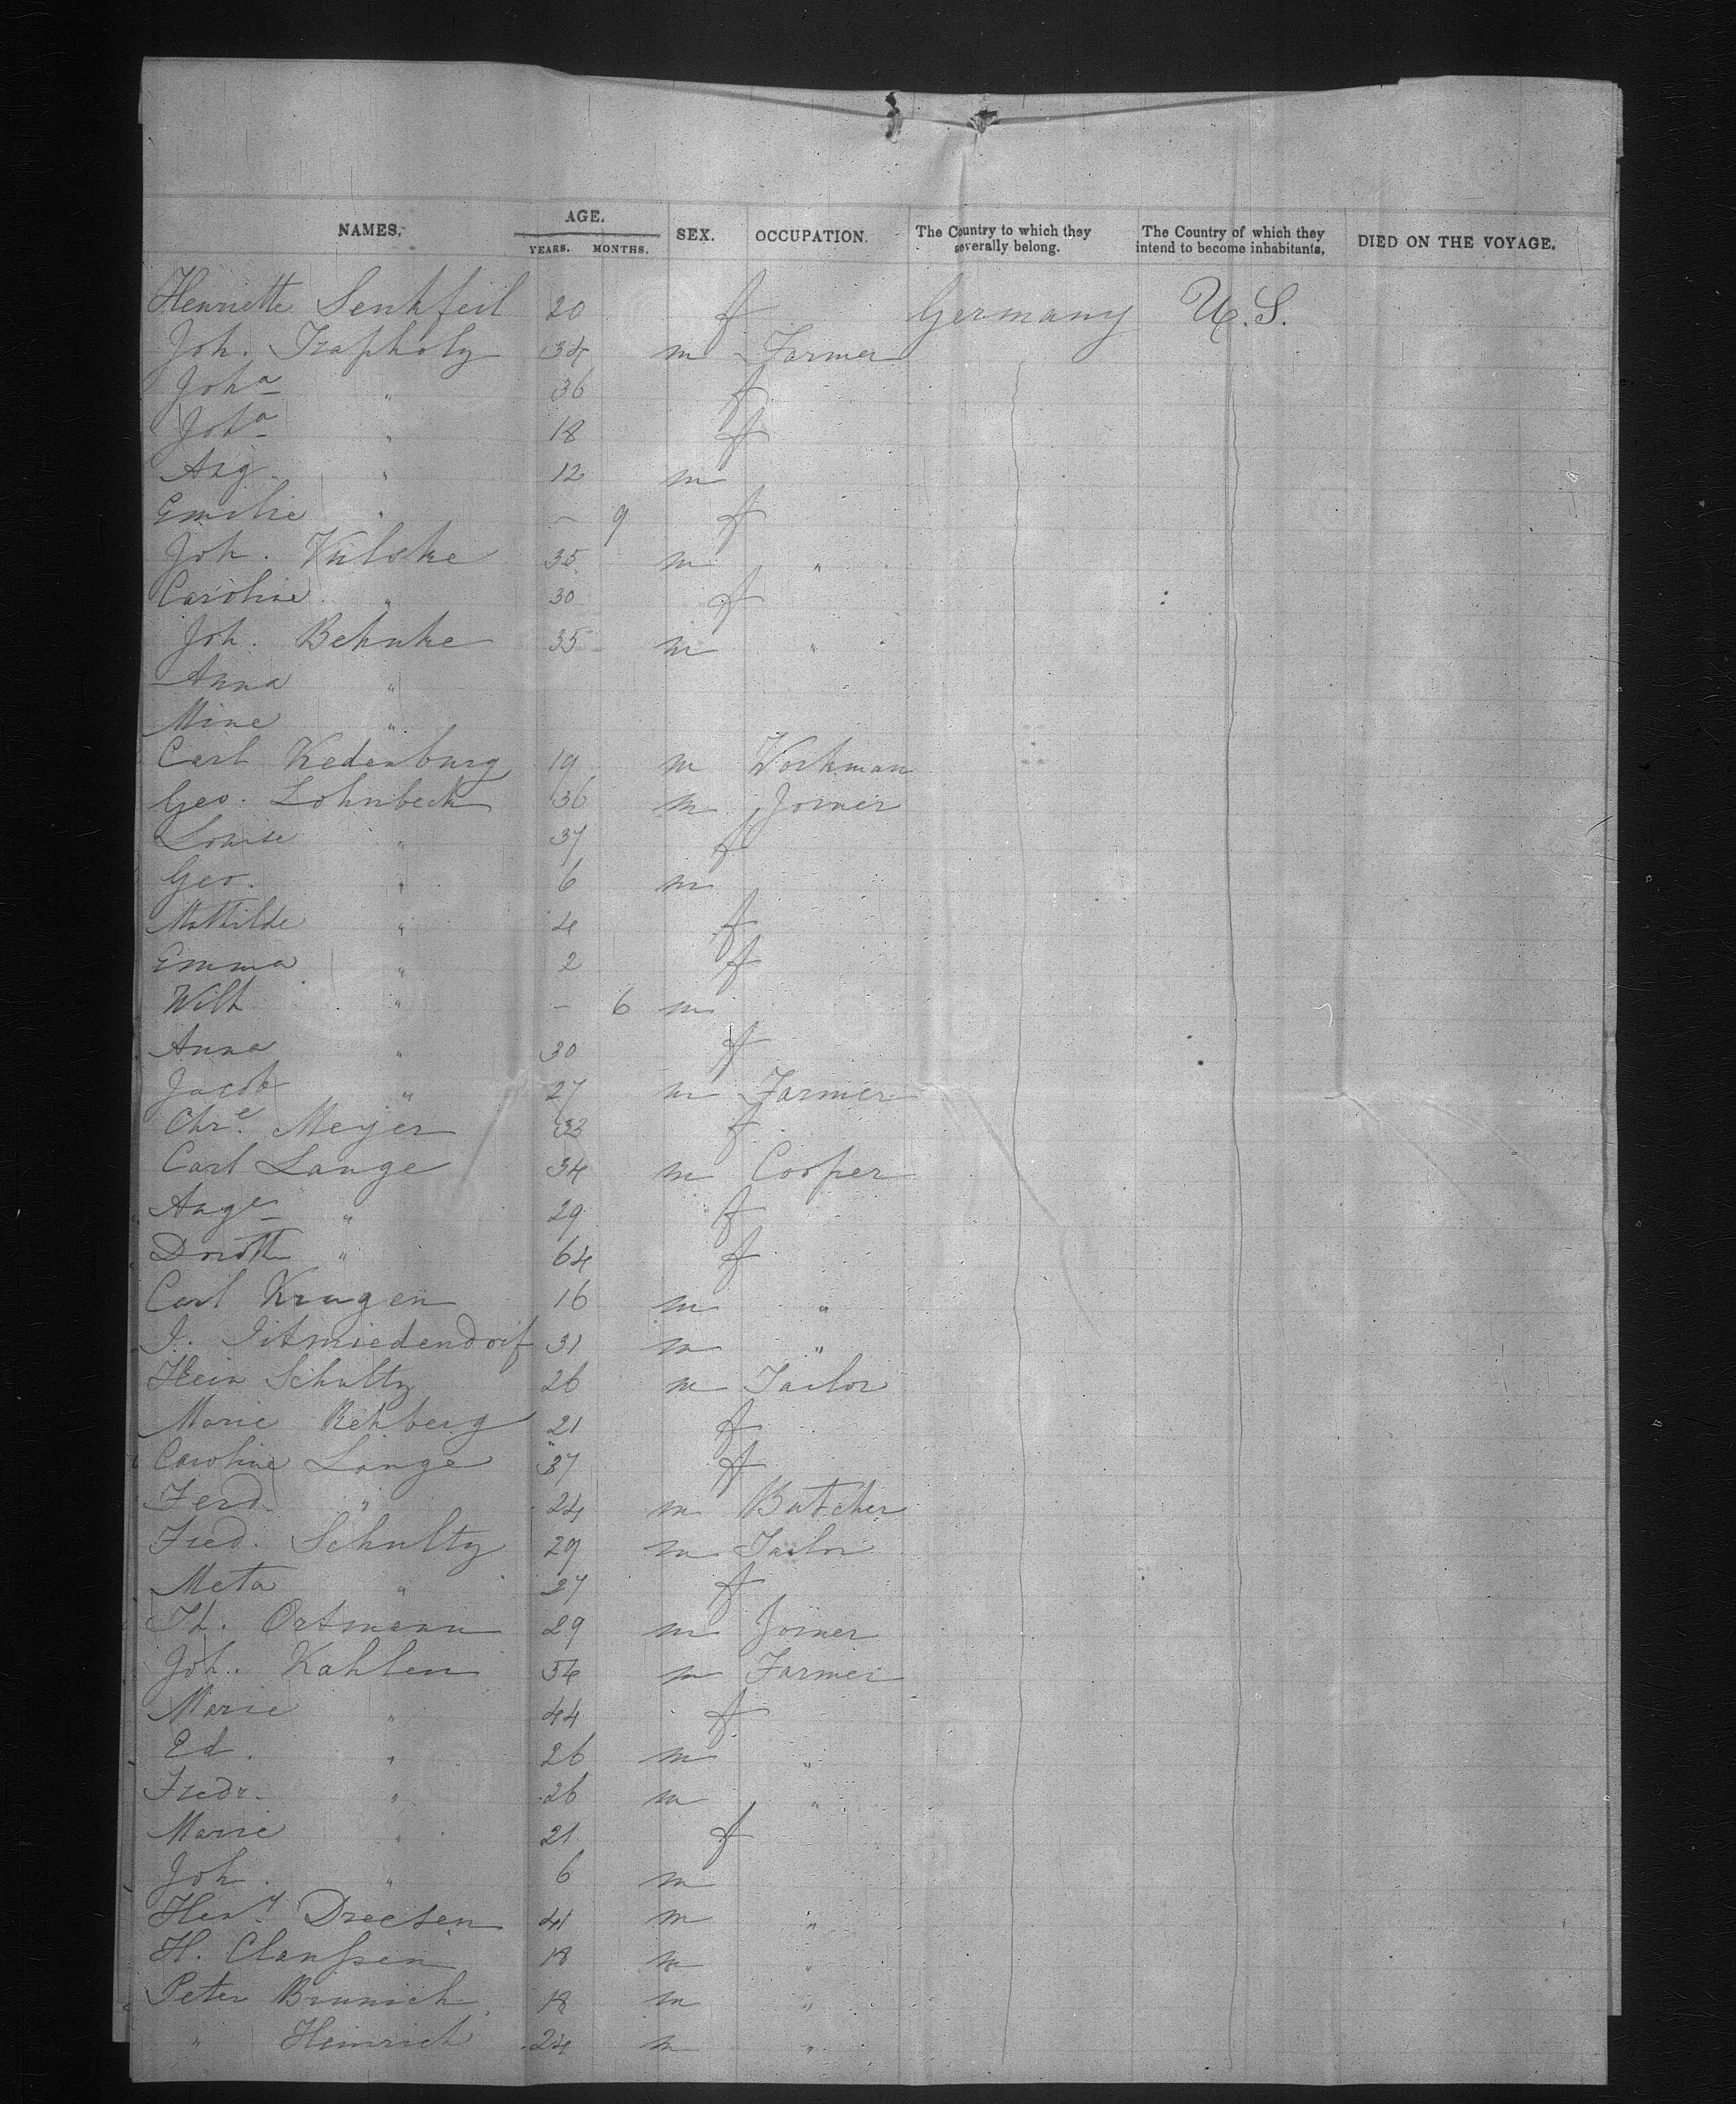 NAMES. AGE. SEX. OCCUPATION. The Country to which they severally belong. The Country of which they intend to become inhabitants. DIED ON THE VOYAGE.
YEARS. MONTHS.
Henriette Senkfeil 20 f Germany U.S.
Joh. Trapholz 34 m Farmer
Joha " 36 f
Joha " 18 f
Aug. " 12 m
Emilie " - 9 f
Joh. Kulske 35 m "
Caroline " 30 f
Joh. Behnke 35 m "
Anna "
Mine "
Carl Kedenburg 19 m Workman
Geo. Lohnbeck 36 m Joiner
Louise " 37 f
Geo. " 6 m
Mathilde " 4 f
Emma " 2 f
Wilh " - 6 m
Anna " 30 f
Jacob " 27 m Farmer
Chre. Meyer 33 f
Carl Lange 34 m Cooper
Auge " 29 f
Doroth " 64 f
Carl Krugen 16 m "
J. 31 m "
Hein Schultz 26 m Tailor
Marie Rehberg 21 f
Caroline Lange 37 f
Ferd. " 24 m Butcher
Fred. Schultz 29 m Tailor
Meta " 27 f
Th. Ortmann 29 m Joiner
Joh. Kahlen 54 m Farmer
Marie " 44 f
Ed. " 26 m "
Fredr. " 26 m "
Marie " 21 f
Joh. " 6 m
Heny. Dreesen 41 m "
H. Claussen 18 m "
Peter Brunich 18 m "
" Heinrich 24 m "